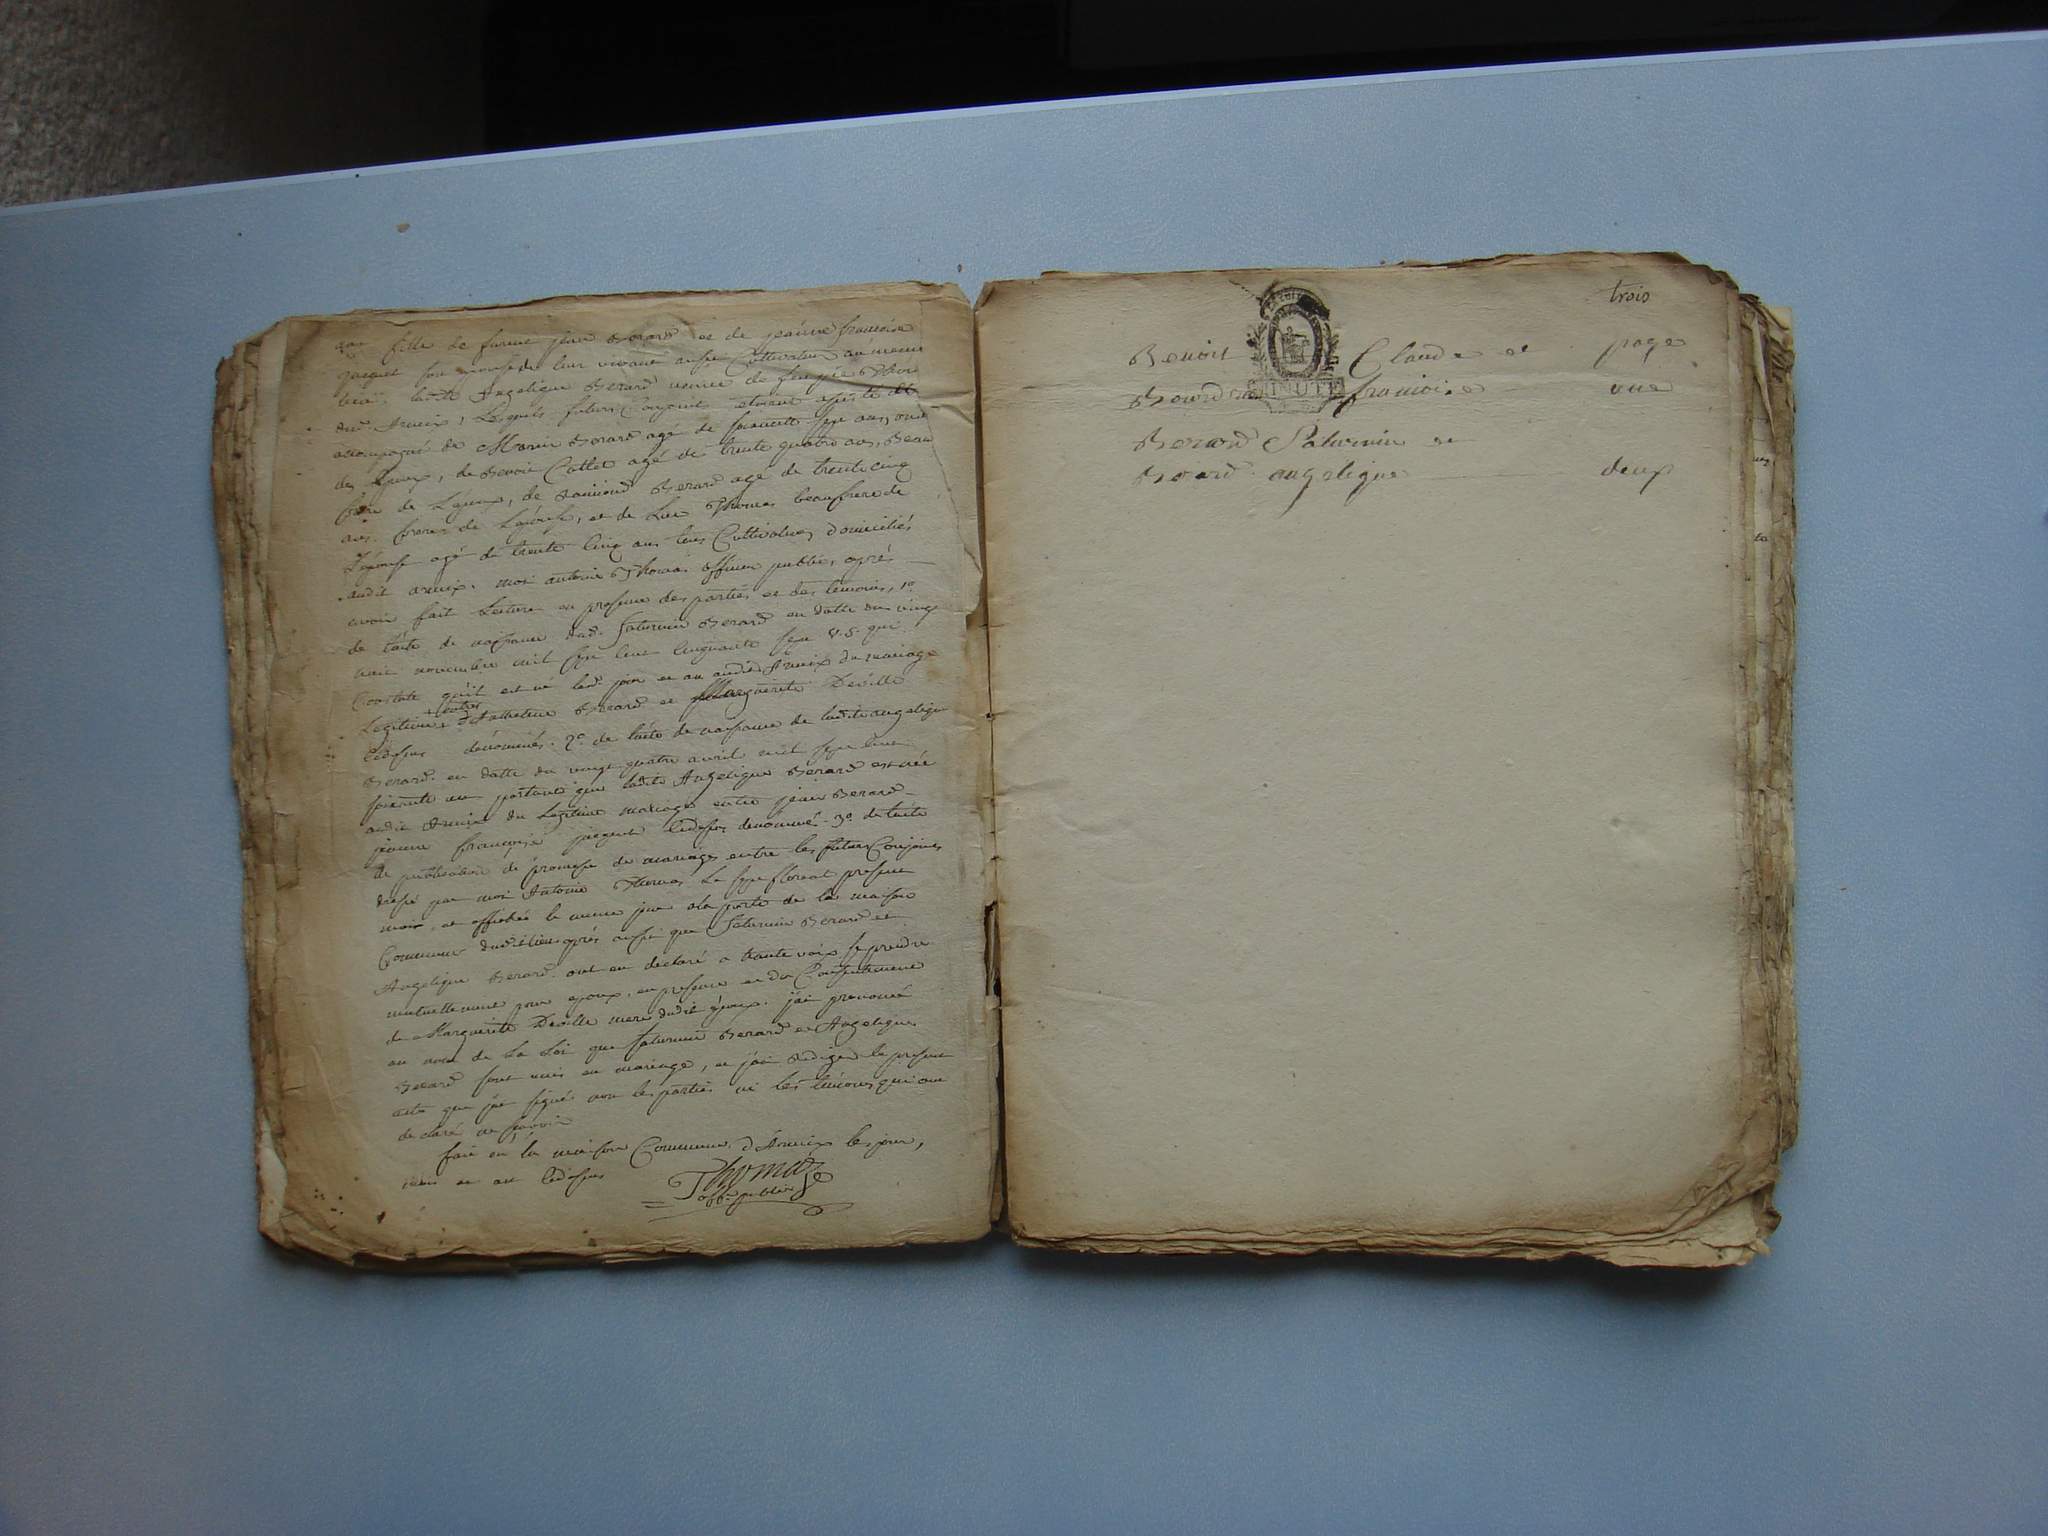 ans fille de furent jean Berard et de jeanne francoise
jacquet son epouse de leur vivant aussi Cultivateur au meme
lieu, ladte Angelique Berard veuve de feu
dud. Arnix, Lesquels futurs Conjoints etoient
accompagné de Berard agé de soixante sept ans, oncle
de Lepoux, de Benoit Collet agé de trente quatre ans, Beau
frere de Lépoux, de Berard agé de trente cinq
ans frere de Lépouse, et de Luc Thomas beaufrere de
Lépouse agé de trente Cinq ans tous Cultivateurs domiciliés
audit arnix. moi antoine Thomas officier public, aprés
avoir fait Lecture en presence des parties et des temoins, 1o
de lácte de naissance dud. Saturnin Berard en datte du vingt
huit novembre mil sept cent cinquante sept V.S. qui
Constate qu'il est né led. jour et an audit Arnix du mariage
Legitime entre Berard et Marguerite Deville
Cidessus dénommés. 2o de lácte de naissance de ladite angelique
Berard en datte du vingt quatre avril mil sept cent
soixante un portant que ladte Angelique Berard est née
audit Arnix du Legitime mariage entre jean Berard
jeanne françoise jacquet Cidessus denommés. 3o de lácte
de publication de promesse de mariage entre les futurs Conjoints
dressé par moi Antoine Thomas Le sept floreal present
mois, et affichée le meme jour a la porte de la maison
Commune dudit lieu aprés aussi que Saturnin Berard et
Angelique Berard ont eu declaré a haute voix se prendre
mutuellement pour epoux, en presence et du Consentement
de Marguerite Deville mere dudit époux. j'ai prononcé
au nom de La Loi que Saturnin Berard et Angelique
Berard sont unis en mariage, et j'ai redigé le present
acte que j'ai signé non les parties ni les témoins qui ont
declaré ne savoir
fait en la maison Commune d'Arnix les jour,
mois et an Cidessus
Thomas
offer public
trois
Benoit Claude et page
francoise une
Berard Saturnin et
Berard angelique deux